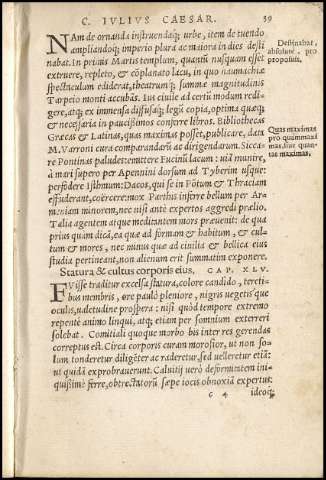 C. IVLIVS CAESAR. 59
NAm de ornanda instruendaq́; urbe, item de tuendo
ampliandoq́; imperio plura ac maiora in dies desti
nabat. In primis Martis templum, quantũ nusquam esset
extruere, repleto, & cõplanato lacu, in quo naumachiæ
spectaculum ediderat, theatrumq́; summæ magnitudinis
Tarpeio monti accubãs. Ius ciuile ad certũ modum redi-
gere, atq; ex immensa diffusaq́; legũ copia, optima quæq;
& necessaria in paucissimos conferre libros. Bibliothecas
Græcas & Latinas, quas maximas posset, publicare, data
M. Varroni cura comparandarũ ac dirigendarum. Sicca-
re Pontinas paludes: emittere Fucinũ lacum: uiã munire,
à mari supero per Apennini dorsum ad Tyberim usque:
perfodere Isthmum: Dacos, qui se in Põtum & Thraciam
effuderant, coërcere: mox Parthis inferre bellum per Ar-
meniam minorem, nec nisi antè expertos aggredi prælio.
Talia agentem atque meditantem mors præuenit: de qua
prius quam dicã, ea quæ ad formam & habitum, & cul-
tum & mores, nec minus quæ ad ciuilia & bellica eius
studia pertineant, non alienum erit summatim exponere.
Statura & cultus corporis eius. CAP. XLV.
FVisse traditur excelsa statura, colore candido, tereti-
bus membris, ore paulò pleniore, nigris uegetis que
oculis, ualetudine prospera: nisi quòd tempore extremo
repentè animo linqui, atq; etiam per somnium exterreri
solebat. Comitiali quoque morbo bis inter res gerendas
correptus est. Circa corporis curam morosior, ut non so-
lum tonderetur diligẽter ac raderetur, sed uelleretur etiã:
ut quidã exprobrauerunt. Caluitij uerò deformitatem ini-
quissimè ferre, obtrectatorũ sæpe iocis obnoxiã expertus:
G 4 ideoq́;
Destinabat,
absolutè, pro
proposuit.
Quas maximas
pro quàm maxi
mas, siue quan-
tas maximas.